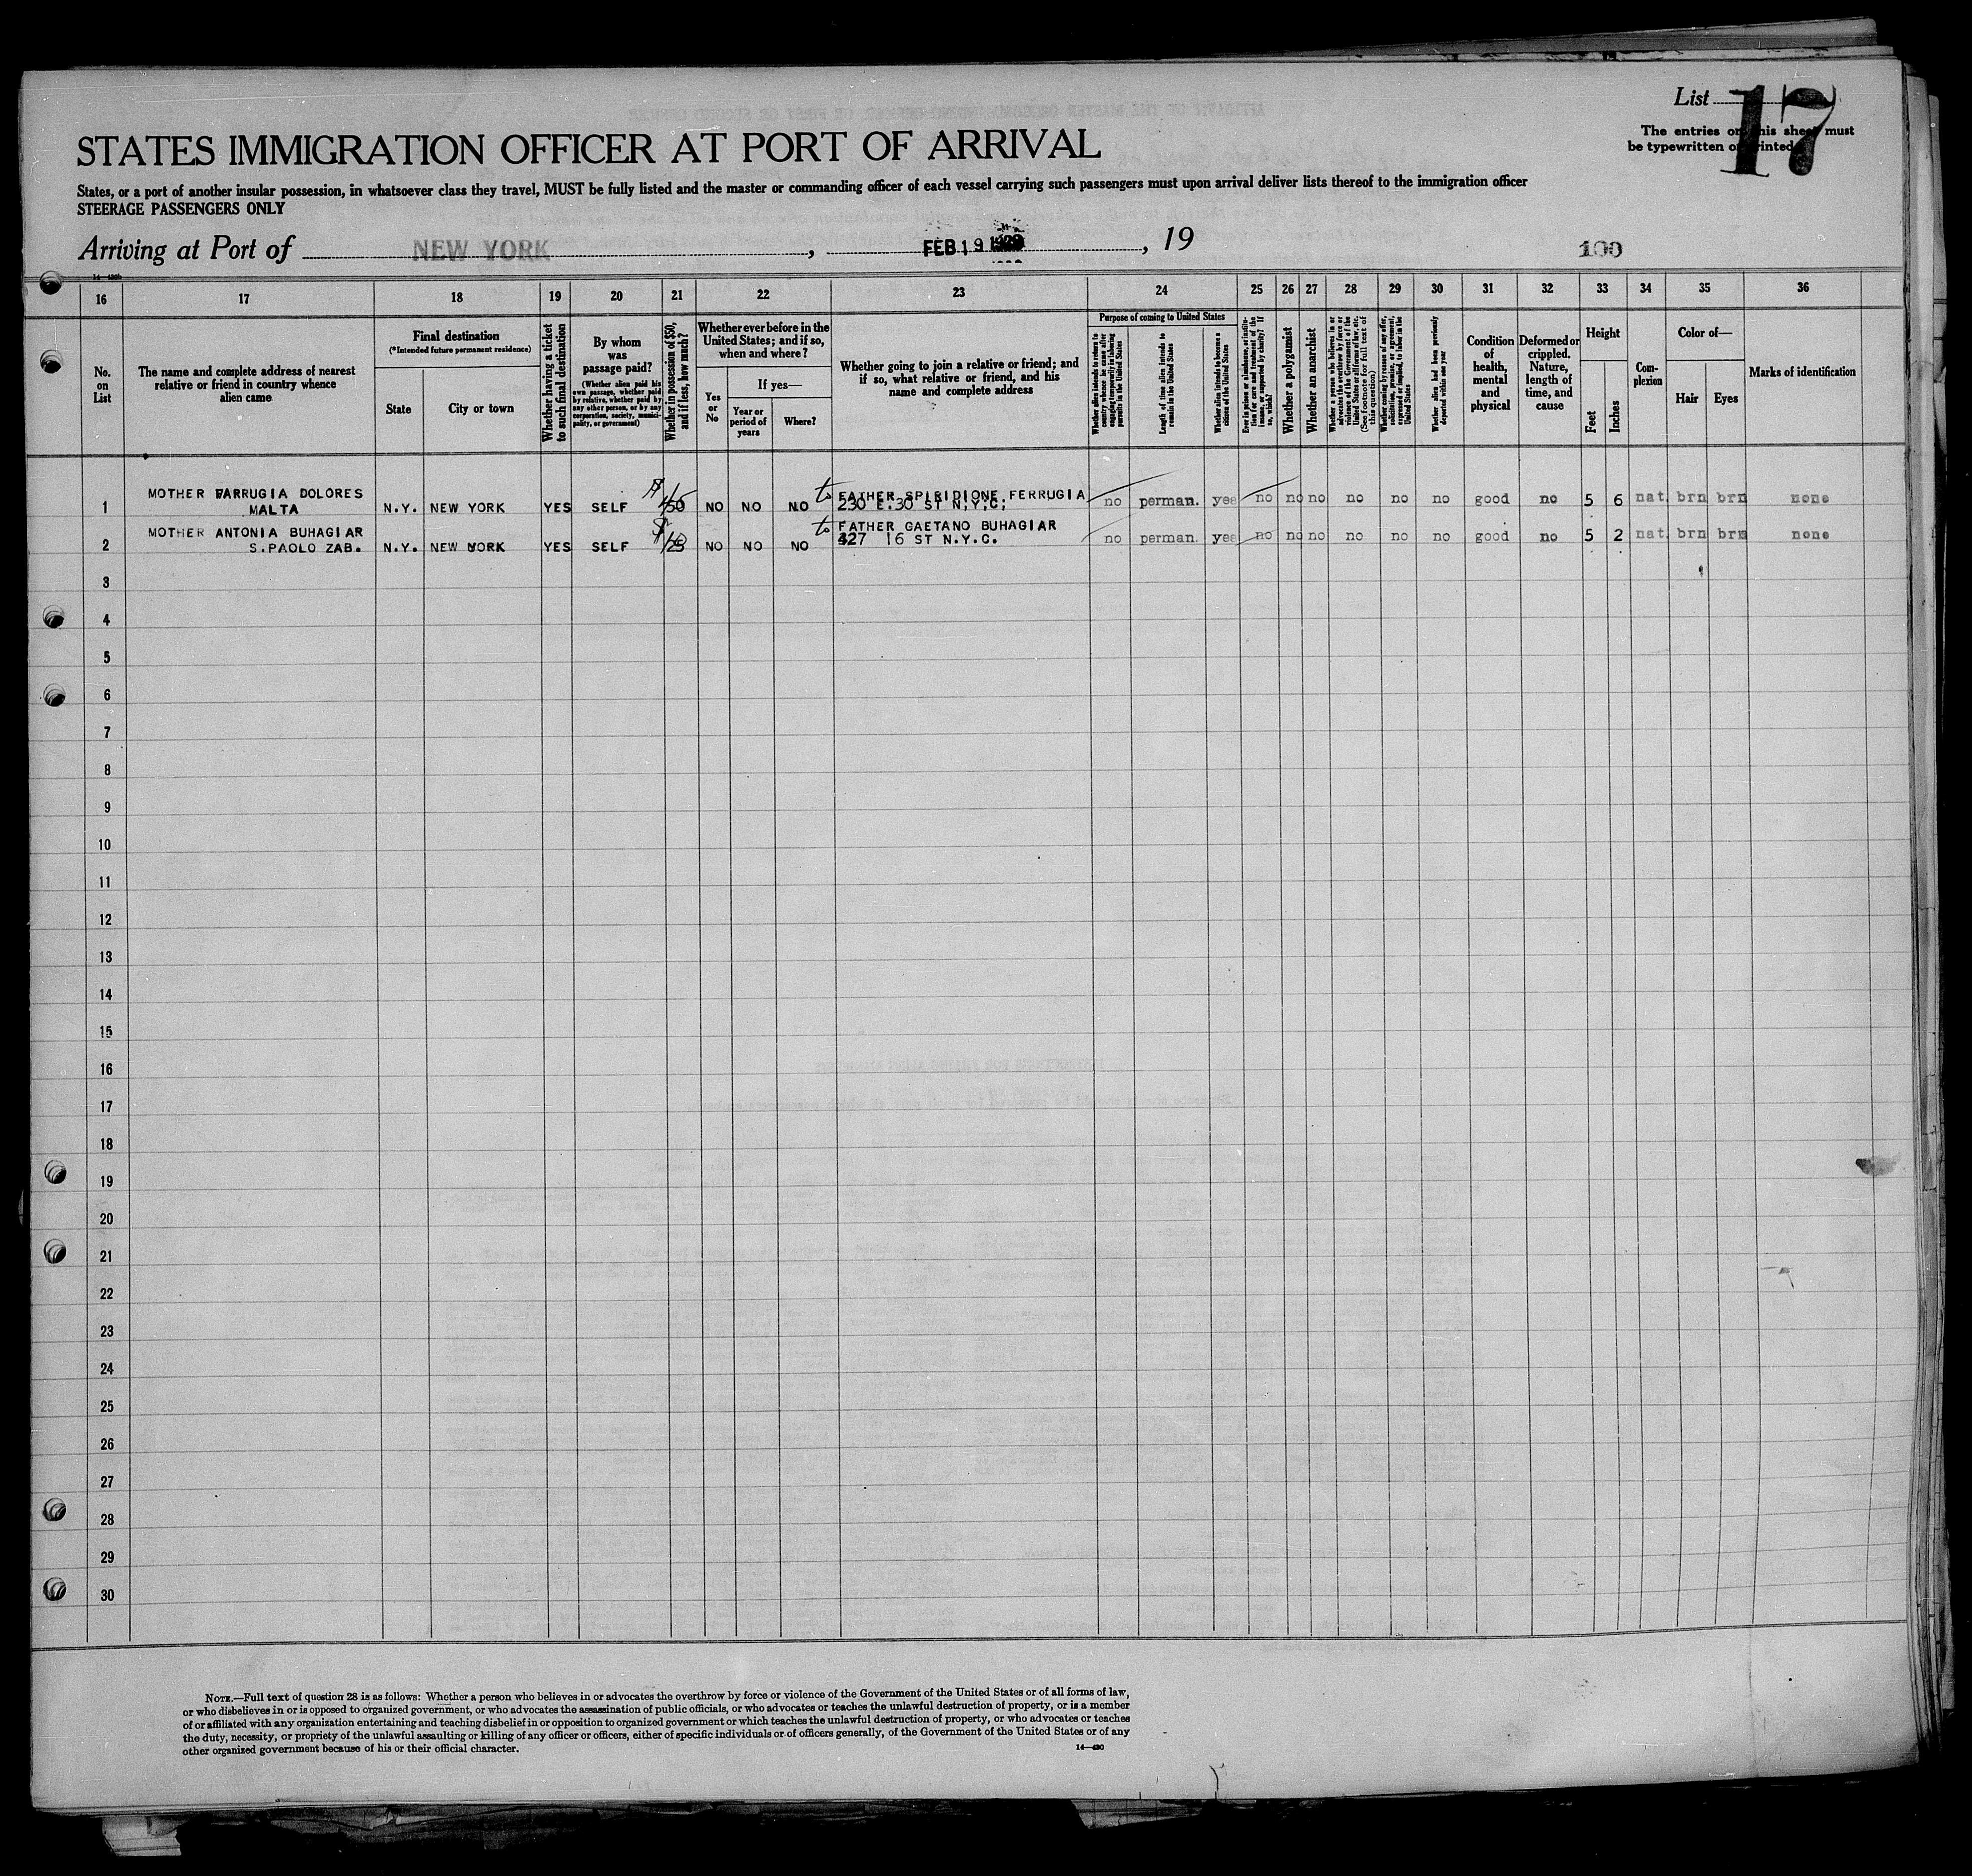 List 17
The entries on this sheet must
be typewritten or printed
STATES IMMIGRATION OFFICER AT PORT OF ARRIVAL
States, or a port of another insular possession, in whatsoever class they travel, MUST be fully listed and the master or commanding officer of each vessel carrying such passengers must upon arrival deliver lists thereof to the immigration officer
STEERAGE PASSENGERS ONLY
Arriving at Port of NEW YORK, FEB 19 1929, 19
100
16 17 18 19 20 21 22 23 24 25 26 27 28 29 30 31 32 33 34 35 36
No. on List
The name and complete address of nearest relative or friend in country whence alien came
Final destination
(*Intended future permanent residence)
State
City or town
Whether having a ticket to such final destination
By whom was passage paid?
(Whether alien paid his own passage, whether paid by relative, whether paid by any other person, or by any corporation, society, municipality, or government)
Whether in possession of $50, and if less, how much?
Whether ever before in the United States; and if so, when and where?
Yes or No
If yes—
Year or period of years
Where?
Whether going to join a relative or friend; and if so, what relative or friend, and his name and complete address
Purpose of coming to United States
Whether alien intends to return to country whence he came after engaging temporarily in laboring pursuits in the United States
Length of time alien intends to remain in the United States
Whether alien intends to become a citizen of the United States
Ever in prison or almshouse, or institution for care and treatment of the insane, or supported by charity? If so, which?
Whether a polygamist
Whether an anarchist
Whether a person who believes in or advocates the overthrow by force or violence of the Government of the United States or all forms of law, etc. (See footnote for full text of this question)
Whether coming by reason of any offer, solicitation, promise, or agreement, expressed or implied, to labor in the United States
Whether alien had been previously deported within one year
Condition of health, mental and physical
Deformed or crippled. Nature, length of time, and cause
Height
Feet
Inches
Complexion
Color of—
Hair
Eyes
Marks of identification
MOTHER FARRUGIA DOLORES to FATHER SPIRIDIONE FERRUGIA
1 MALTA N.Y. NEW YORK YES SELF 50 NO NO NO 230 E.30 ST N.Y.C. no perman. yes no no no no no no good no 5 6 nat. brn brn none
MOTHER ANTONIA BUHAGIAR to FATHER GAETANO BUHAGIAR
2 S.PAOLO ZAB. N.Y. NEW YORK YES SELF 25 NO NO NO 327 16 ST N.Y.C. no perman. yes no no no no no no good no 5 2 nat. brn brn none
3
4
5
6
7
8
9
10
11
12
13
14
15
16
17
18
19
20
21
22
23
24
25
26
27
28
29
30
NOTE.—Full text of question 28 is as follows: Whether a person who believes in or advocates the overthrow by force or violence of the Government of the United States or of all forms of law,
or who disbelieves in or is opposed to organized government, or who advocates the assassination of public officials, or who advocates or teaches the unlawful destruction of property, or is a member
of or affiliated with any organization entertaining and teaching disbelief in or opposition to organized government or which teaches the unlawful destruction of property, or who advocates or teaches
the duty, necessity, or propriety of the unlawful assaulting or killing of any officer or officers, either of specific individuals or of officers generally, of the Government of the United States or of any
other organized government because of his or their official character.
14—430